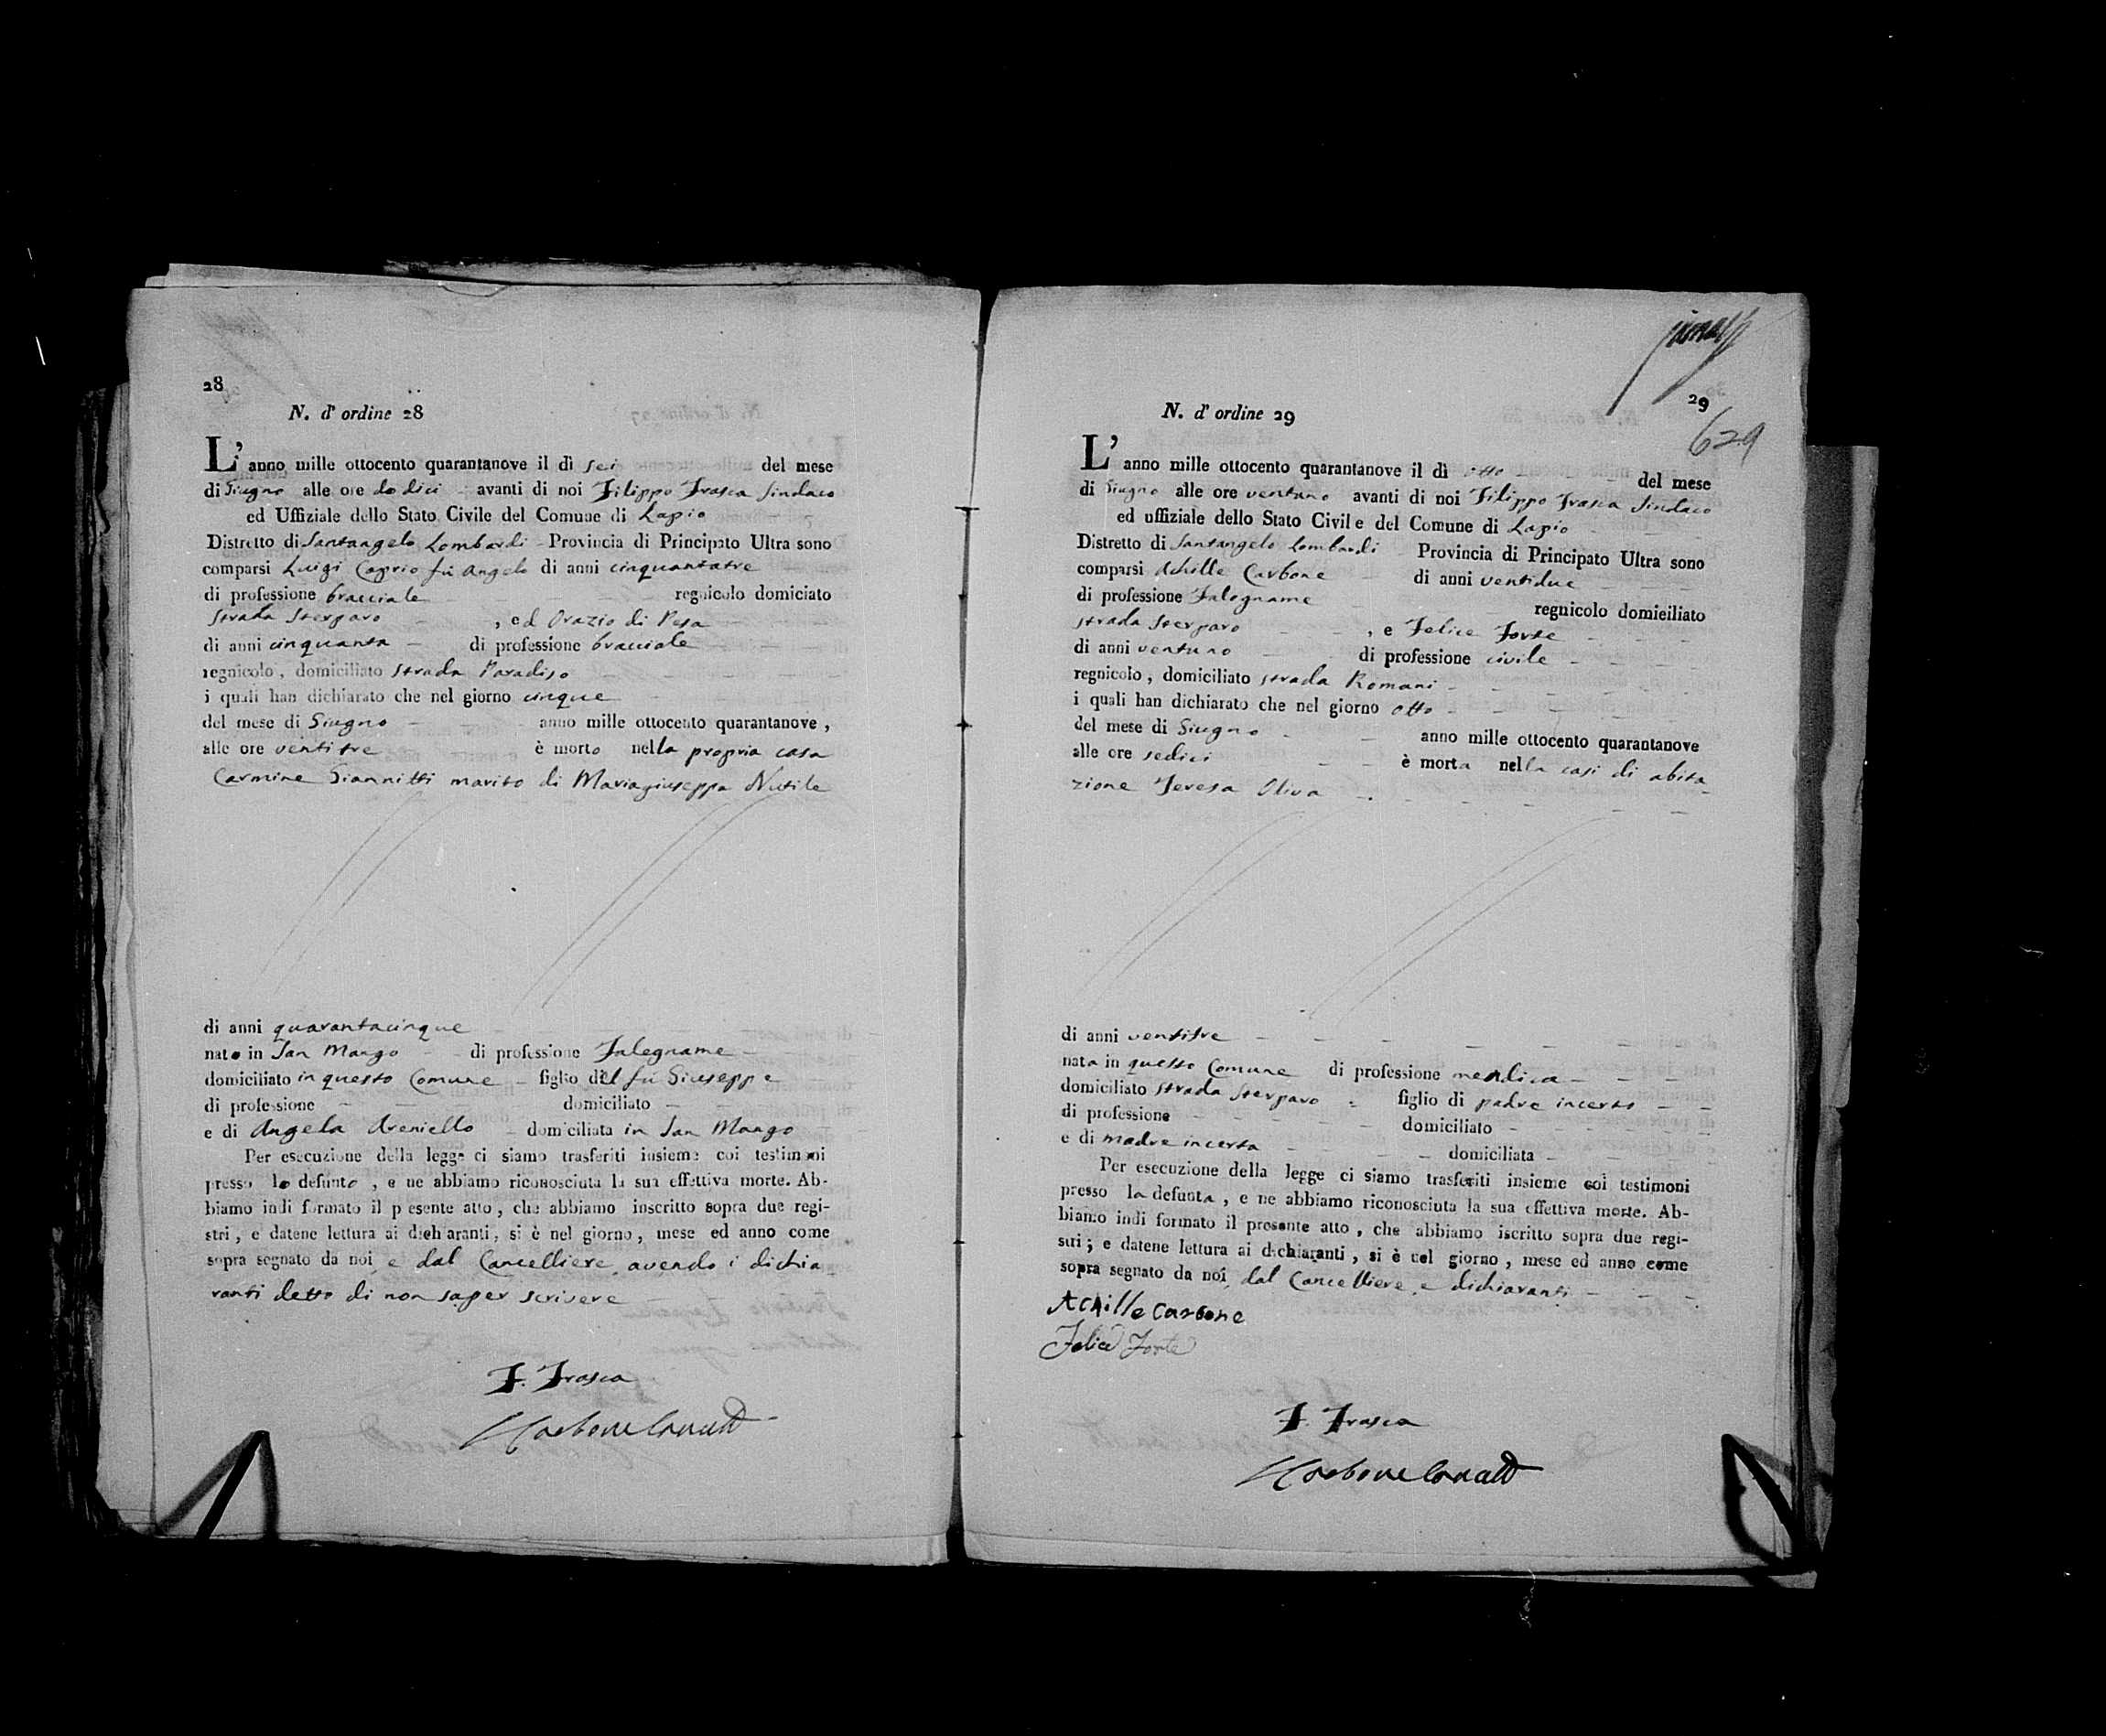 28
N. d' ordine 28
L' anno mille ottocento quarantanove il dì sei del mese
di Giugno alle ore dodici avanti di noi Filippo Frasca Sindaco
ed Uffiziale dello Stato Civile del Comune di Lapio
Distretto di Santangelo Lombardi Provincia di Principato Ultra sono
comparsi Luigi Caprio fu Angelo di anni cinquantatre
di professione bracciale regnicolo domiciato
strada Sterparo , ed Orazio di Pesa
di anni cinquanta di professione bracciale
regnicolo, domiciliato strada Paradiso
i quali han dichiarato che nel giorno cinque
del mese di Giugno anno mille ottocento quarantanove,
alle ore ventitre è morto nella propria casa
Carmine Giannitti marito di Mariagiuseppa Nutile
di anni quarantacinque
nato in San Mango di professione Falegname
domiciliato in questo Comune figlio del fu Giuseppe
di professione domiciliato
e di Angela Areniello domiciliata in San Mango
Per esecuzione della legge ci siamo trasferiti insieme coi testimoni
presso lo defunto, e ne abbiamo riconosciuta la sua effettiva morte. Ab-
biamo indi formato il presente atto, che abbiamo inscritto sopra due regi-
stri, e datene lettura ai dichiaranti, si è nel giorno, mese ed anno come
sopra segnato da noi e dal Cancelliere avendo i dichia
ranti detto di non saper scrivere
F. Frasca
29
629
N. d' ordine 29
L' anno mille ottocento quarantanove il dì otto del mese
di Giugno alle ore ventuno avanti di noi Filippo Frasca Sindaco
ed uffiziale dello Stato Civile del Comune di Lapio
Distretto di Santangelo Lombardi Provincia di Principato Ultra sono
comparsi Achille Carbone di anni ventidue
di professione Falegname regnicolo domiciliato
strada Sterparo , e Felice Forte
di anni ventuno di professione civile
regnicolo, domiciliato strada Romani
i quali han dichiarato che nel giorno otto
del mese di Giugno anno mille ottocento quarantanove
alle ore sedici è morta nella casi di abita
zione Teresa Oliva
di anni ventitre
nata in questo Comune di professione mendica
domiciliato strada Sterparo figlio di padre incerto
di professione domiciliato
e di madre incerta domiciliata
Per esecuzione della legge ci siamo trasferiti insieme coi testimoni
presso la defunta, e ne abbiamo riconosciuta la sua effettiva morte. Ab-
biamo indi formato il presente atto, che abbiamo iscritto sopra due regi-
stri; e datene lettura ai dichiaranti, si è nel giorno, mese ed anno come
sopra segnato da noi dal Cancelliere e dichiaranti
Achille Carbone
Felice Forte
F. Frasca